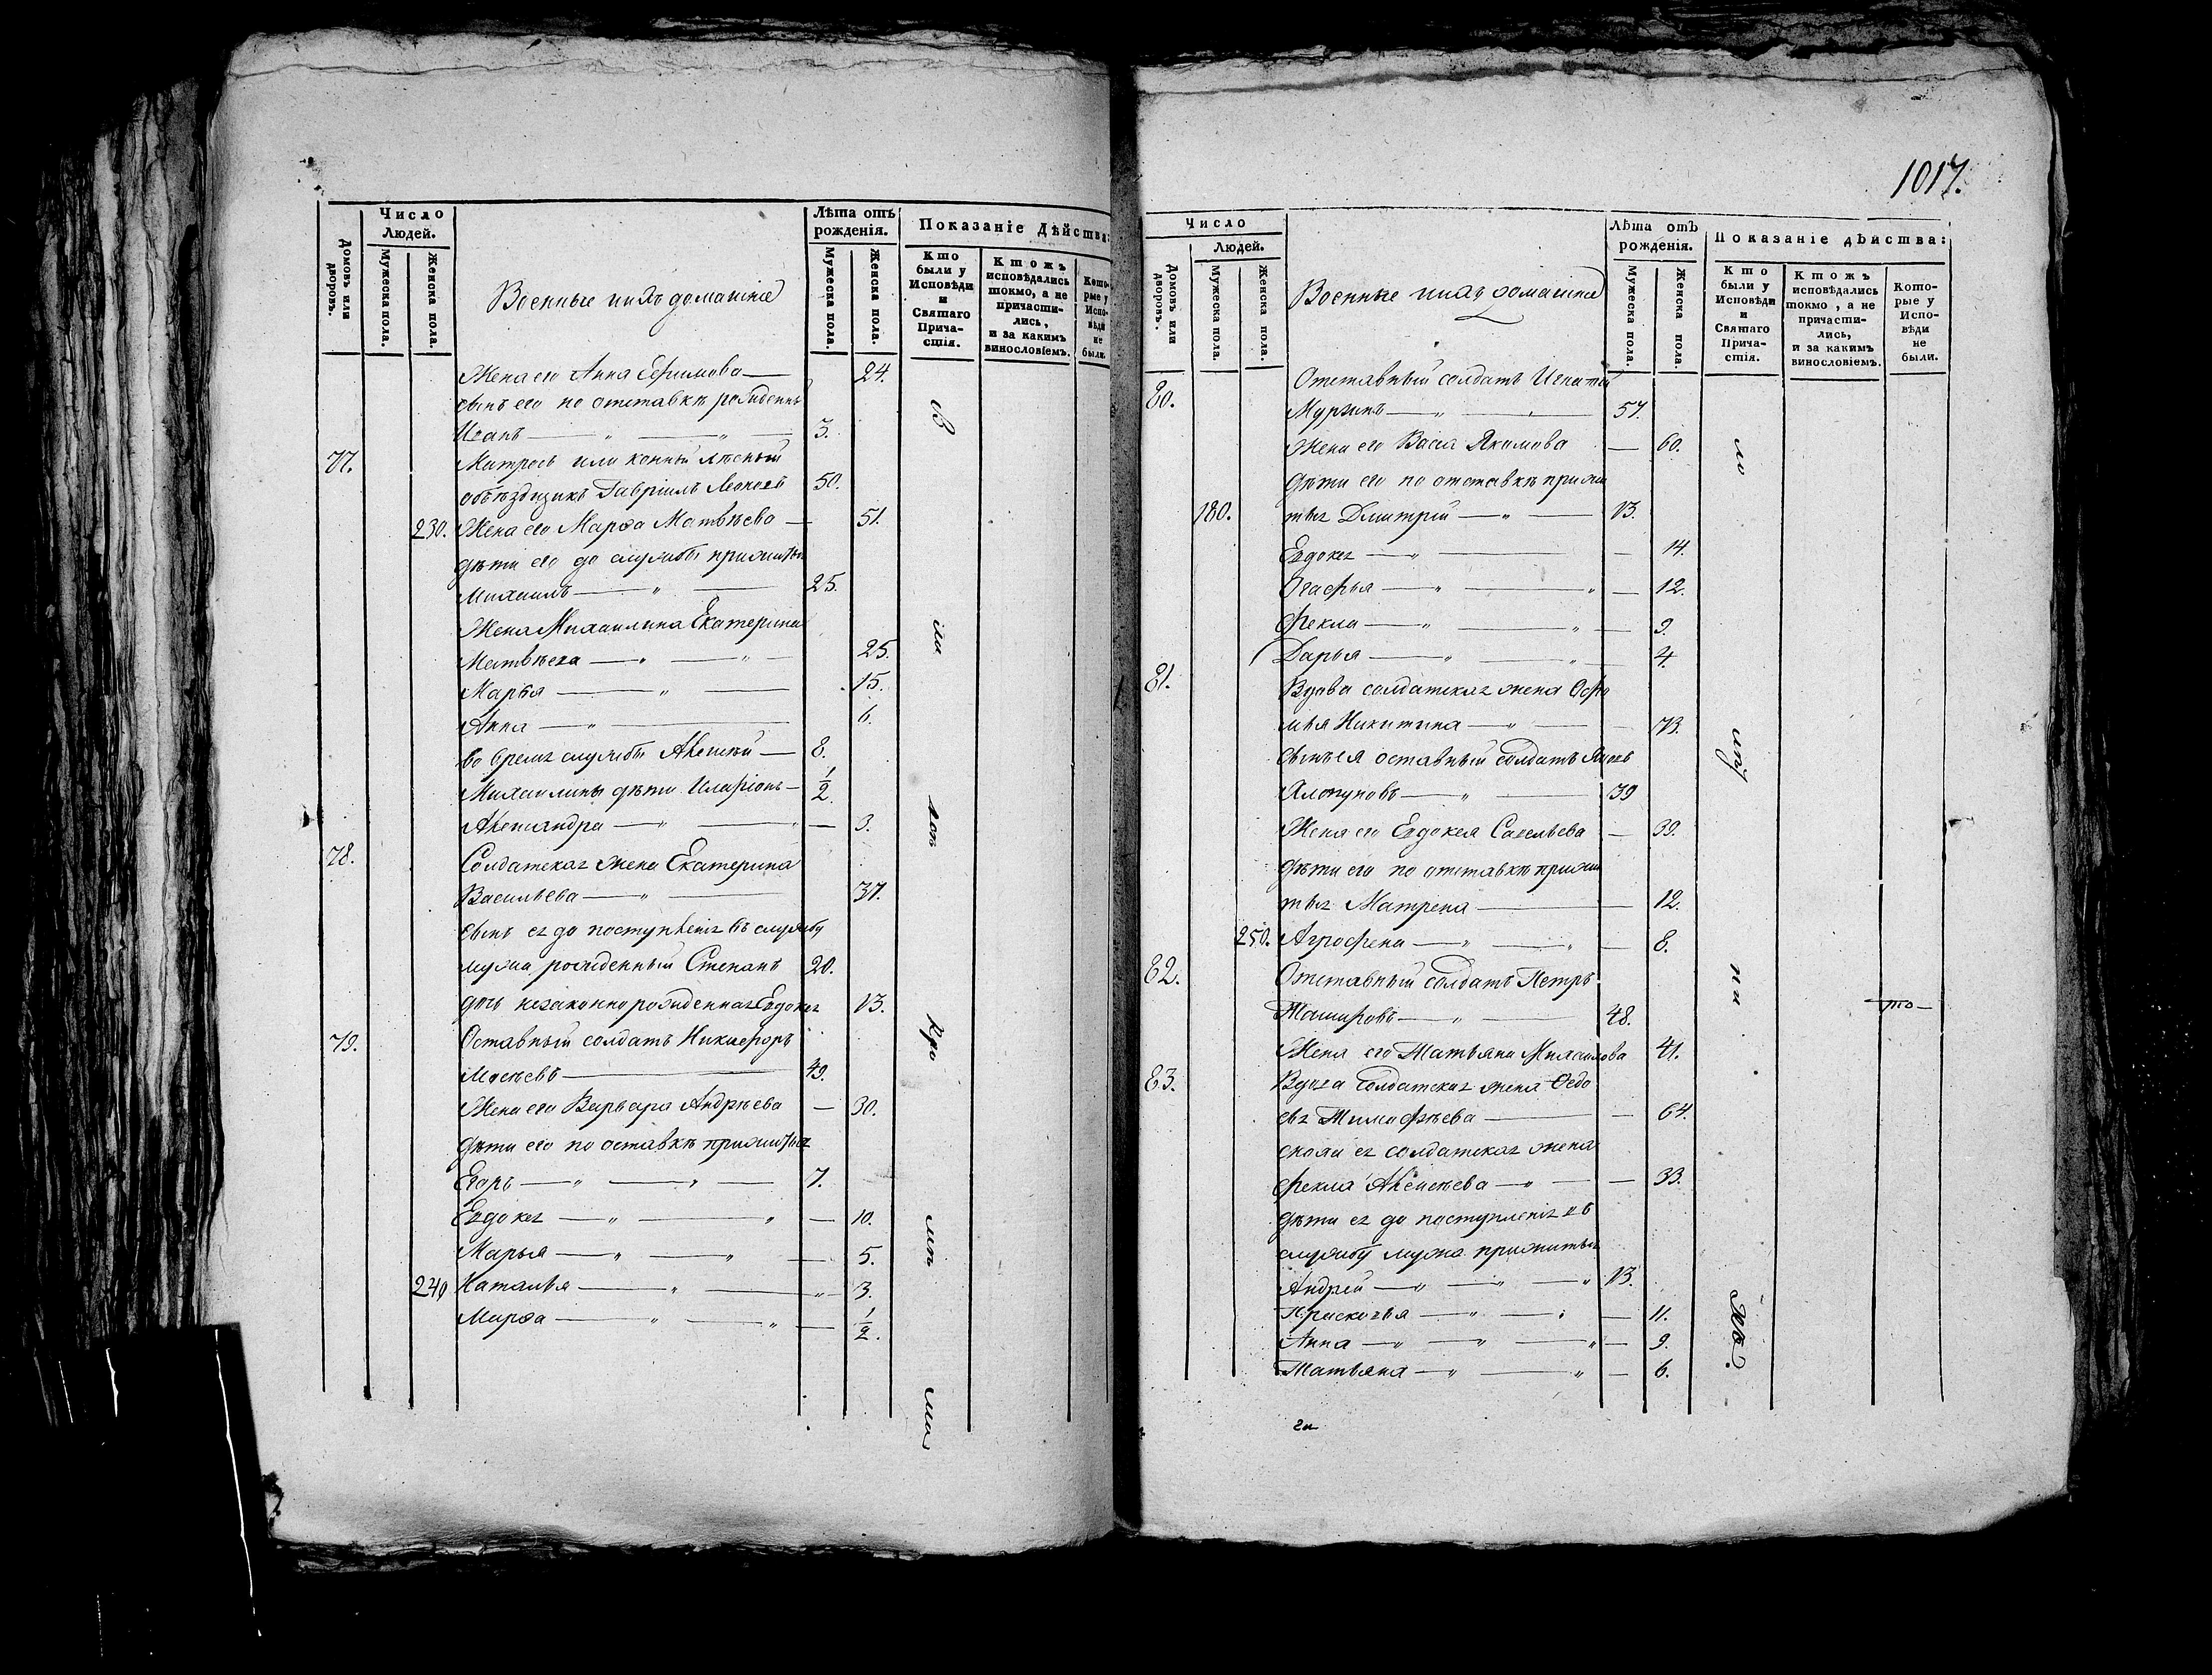 Число Людей.
Лѣта отъ рожденія.
Показаніе Дѣйства:
Домовъ или дворовъ.
Мужеска пола.
Женска пола.
Военные и ихъ домашніе
Мужеска пола.
Женска пола.
Кто были у Исповѣди и Святаго Прича- стія.
Ктожъ исповѣдались токмо, а не причасти- лись, и за какимъ винословіемъ.
Кото- рые у Испо- вѣди не были.
Жена его Анна Ефимова — 24.
сынъ его по отставкѣ рожденны
Иванъ — 3.
77. Матросъ или конный лѣсный
объѣздчикъ Гавріилъ 50.
230. Жена его Марѳа Матвѣева — 51.
дѣти его до службы прижитыя
Михаилъ — 25.
Жена Михаилина Екатерина
Матвѣева — 25.
Марья — 15.
Анна — 6.
во время службы Алексѣй — 8.
Михаилины дѣти Иларіонъ — 1/2.
Александра — 3.
78. Солдатская жена Екатерина
Васильева — 37.
сынъ ея до поступленія въ службу
мужа рожденный Степанъ 20.
дочь незаконнорожденная Евдокея 13.
79. Оставный солдатъ Никифоръ
Мосѣевъ — 49.
Жена его Варвара Андрѣева — 30.
Дѣти его по оставкѣ прижитыя
Егоръ — 7.
Евдокея — 10.
Марья — 5.
240 Наталья — 3.
Марѳа — 1/2.
1017.
Число Людей.
Лѣта отъ рожденія.
Показаніе дѣйства:
Домовъ или дворовъ.
Мужеска пола.
Женска пола.
Военные и ихъ домашніе
Мужеска пола.
Женска пола.
Кто были у Исповѣди и Святаго Прича- стія.
Ктожъ исповѣдались токмо, а не причасти- лись, и за какимъ винословіемъ.
Кото- рые у Испо- вѣди не были.
80. Отставный солдатъ Игнатей
Мурзинъ — 57.
Жена его Васса Якимова — 60.
Дѣти его по отставкѣ прижи
180. тыя Дмитрій — 13.
Евдокея — 14.
Агафья — 12.
Фекла — 9.
Дарья — 4.
81. Вдова солдатская жена Офи
мья Никитина — 73.
Сынъ ея оставный солдатъ Яковъ
39
Жена его Евдокея Савельева — 39.
Дѣти его по отставкѣ прижи
тыя Матрена — 12.
250. Аграфена — 8.
82. Отставный солдатъ Петръ
48.
Жена его Татьяна Михаилова 41.
83. Вдова солдатская жена Ѳедо
сья Тимофѣева — 64.
сноха ея солдатская жена
Фекла Алексѣева — 33.
Дѣти ея до поступленія въ
службу мужа прижитыя
Андрей — 13.
Прасковья — 11.
Анна — 9.
Татьяна — 6.